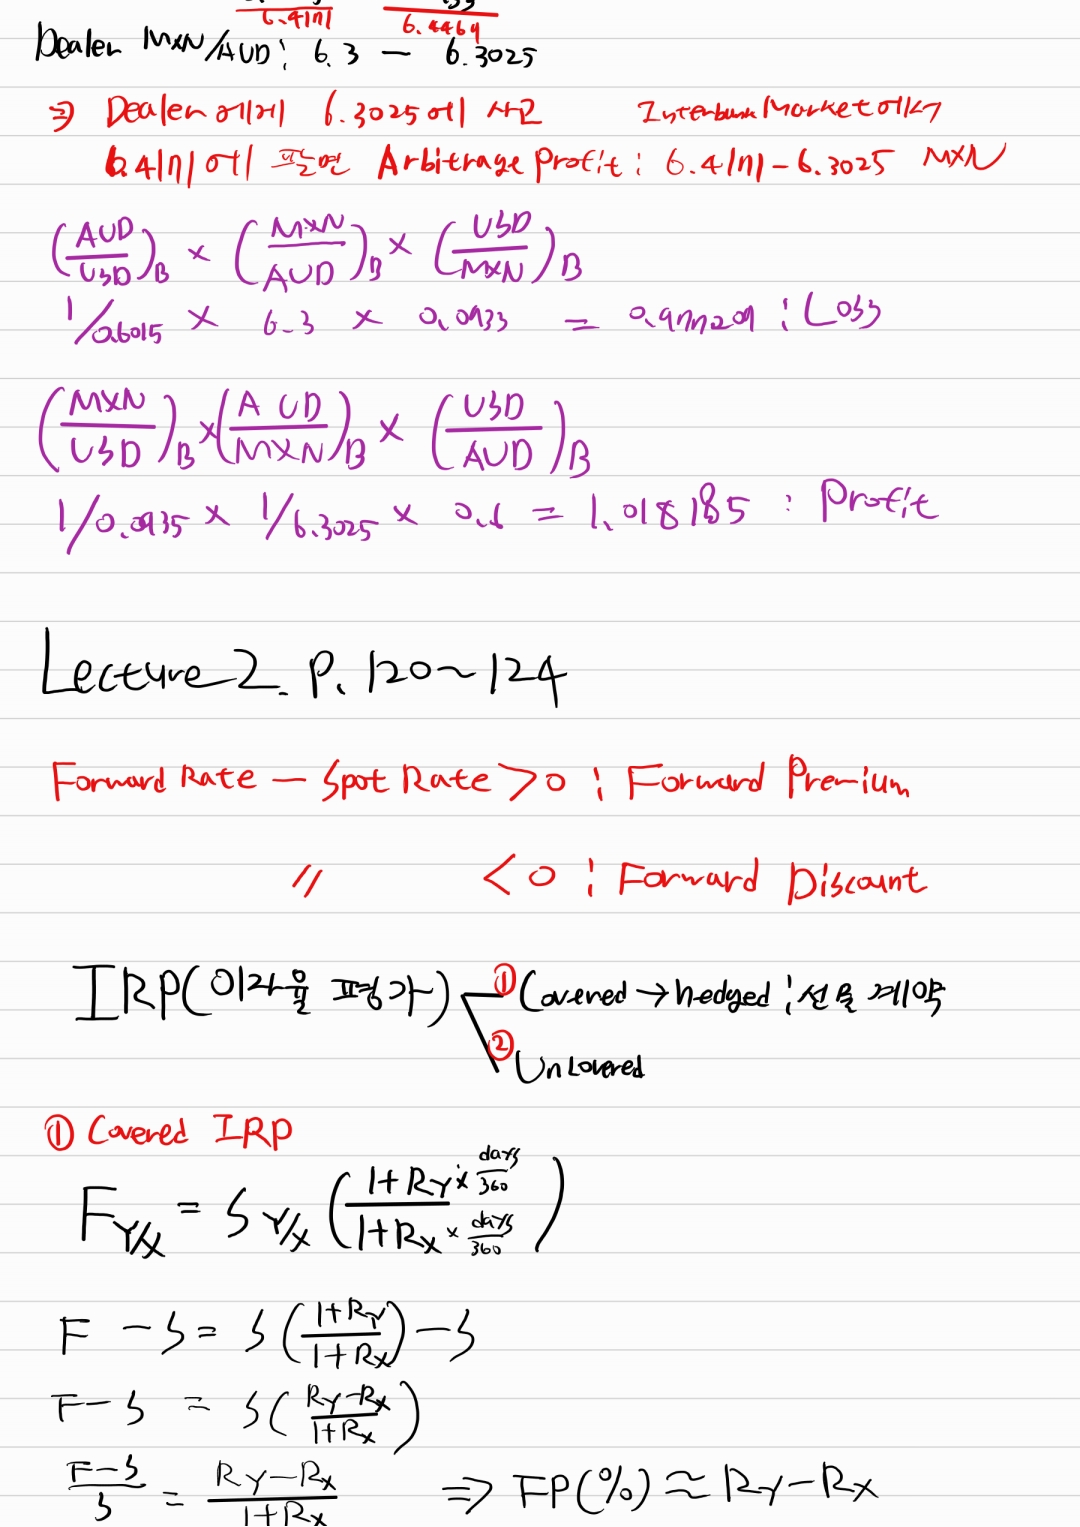 6.4171 6.4464
Dealer MXN/AUD: 6.3 — 6.3025
⇒ Dealer에게 6.3025에 사고 Interbank Market에서
6.4171에 팔면 Arbitrage Profit: 6.4171-6.3025 MXN
(AUD/USD)B × (MXN/AUD)B × (USD/MXN)B
1/0.6015 × 6.3 × 0.0933 = 0.977207 : Loss
(MXN/USD)B × (AUD/MXN)B × (USD/AUD)B
1/0.0935 × 1/6.3025 × 0.6 = 1.018185 : Profit
Lecture 2. P. 120~124
Forward Rate — Spot Rate > 0 : Forward Premium
〃 < 0 : Forward Discount
IRP(이자율 평가) ① Covered → hedged : 선물 계약
② Uncovered
① Covered IRP
F Y/X = S Y/X ( (1+RY × days/360) / (1+RX × days/360) )
F - S = S((1+RY)/(1+RX)) - S
F - S = S((RY-RX)/(1+RX))
(F-S)/S = (RY-RX)/(1+RX) ⇒ FP(%) ≈ RY-RX